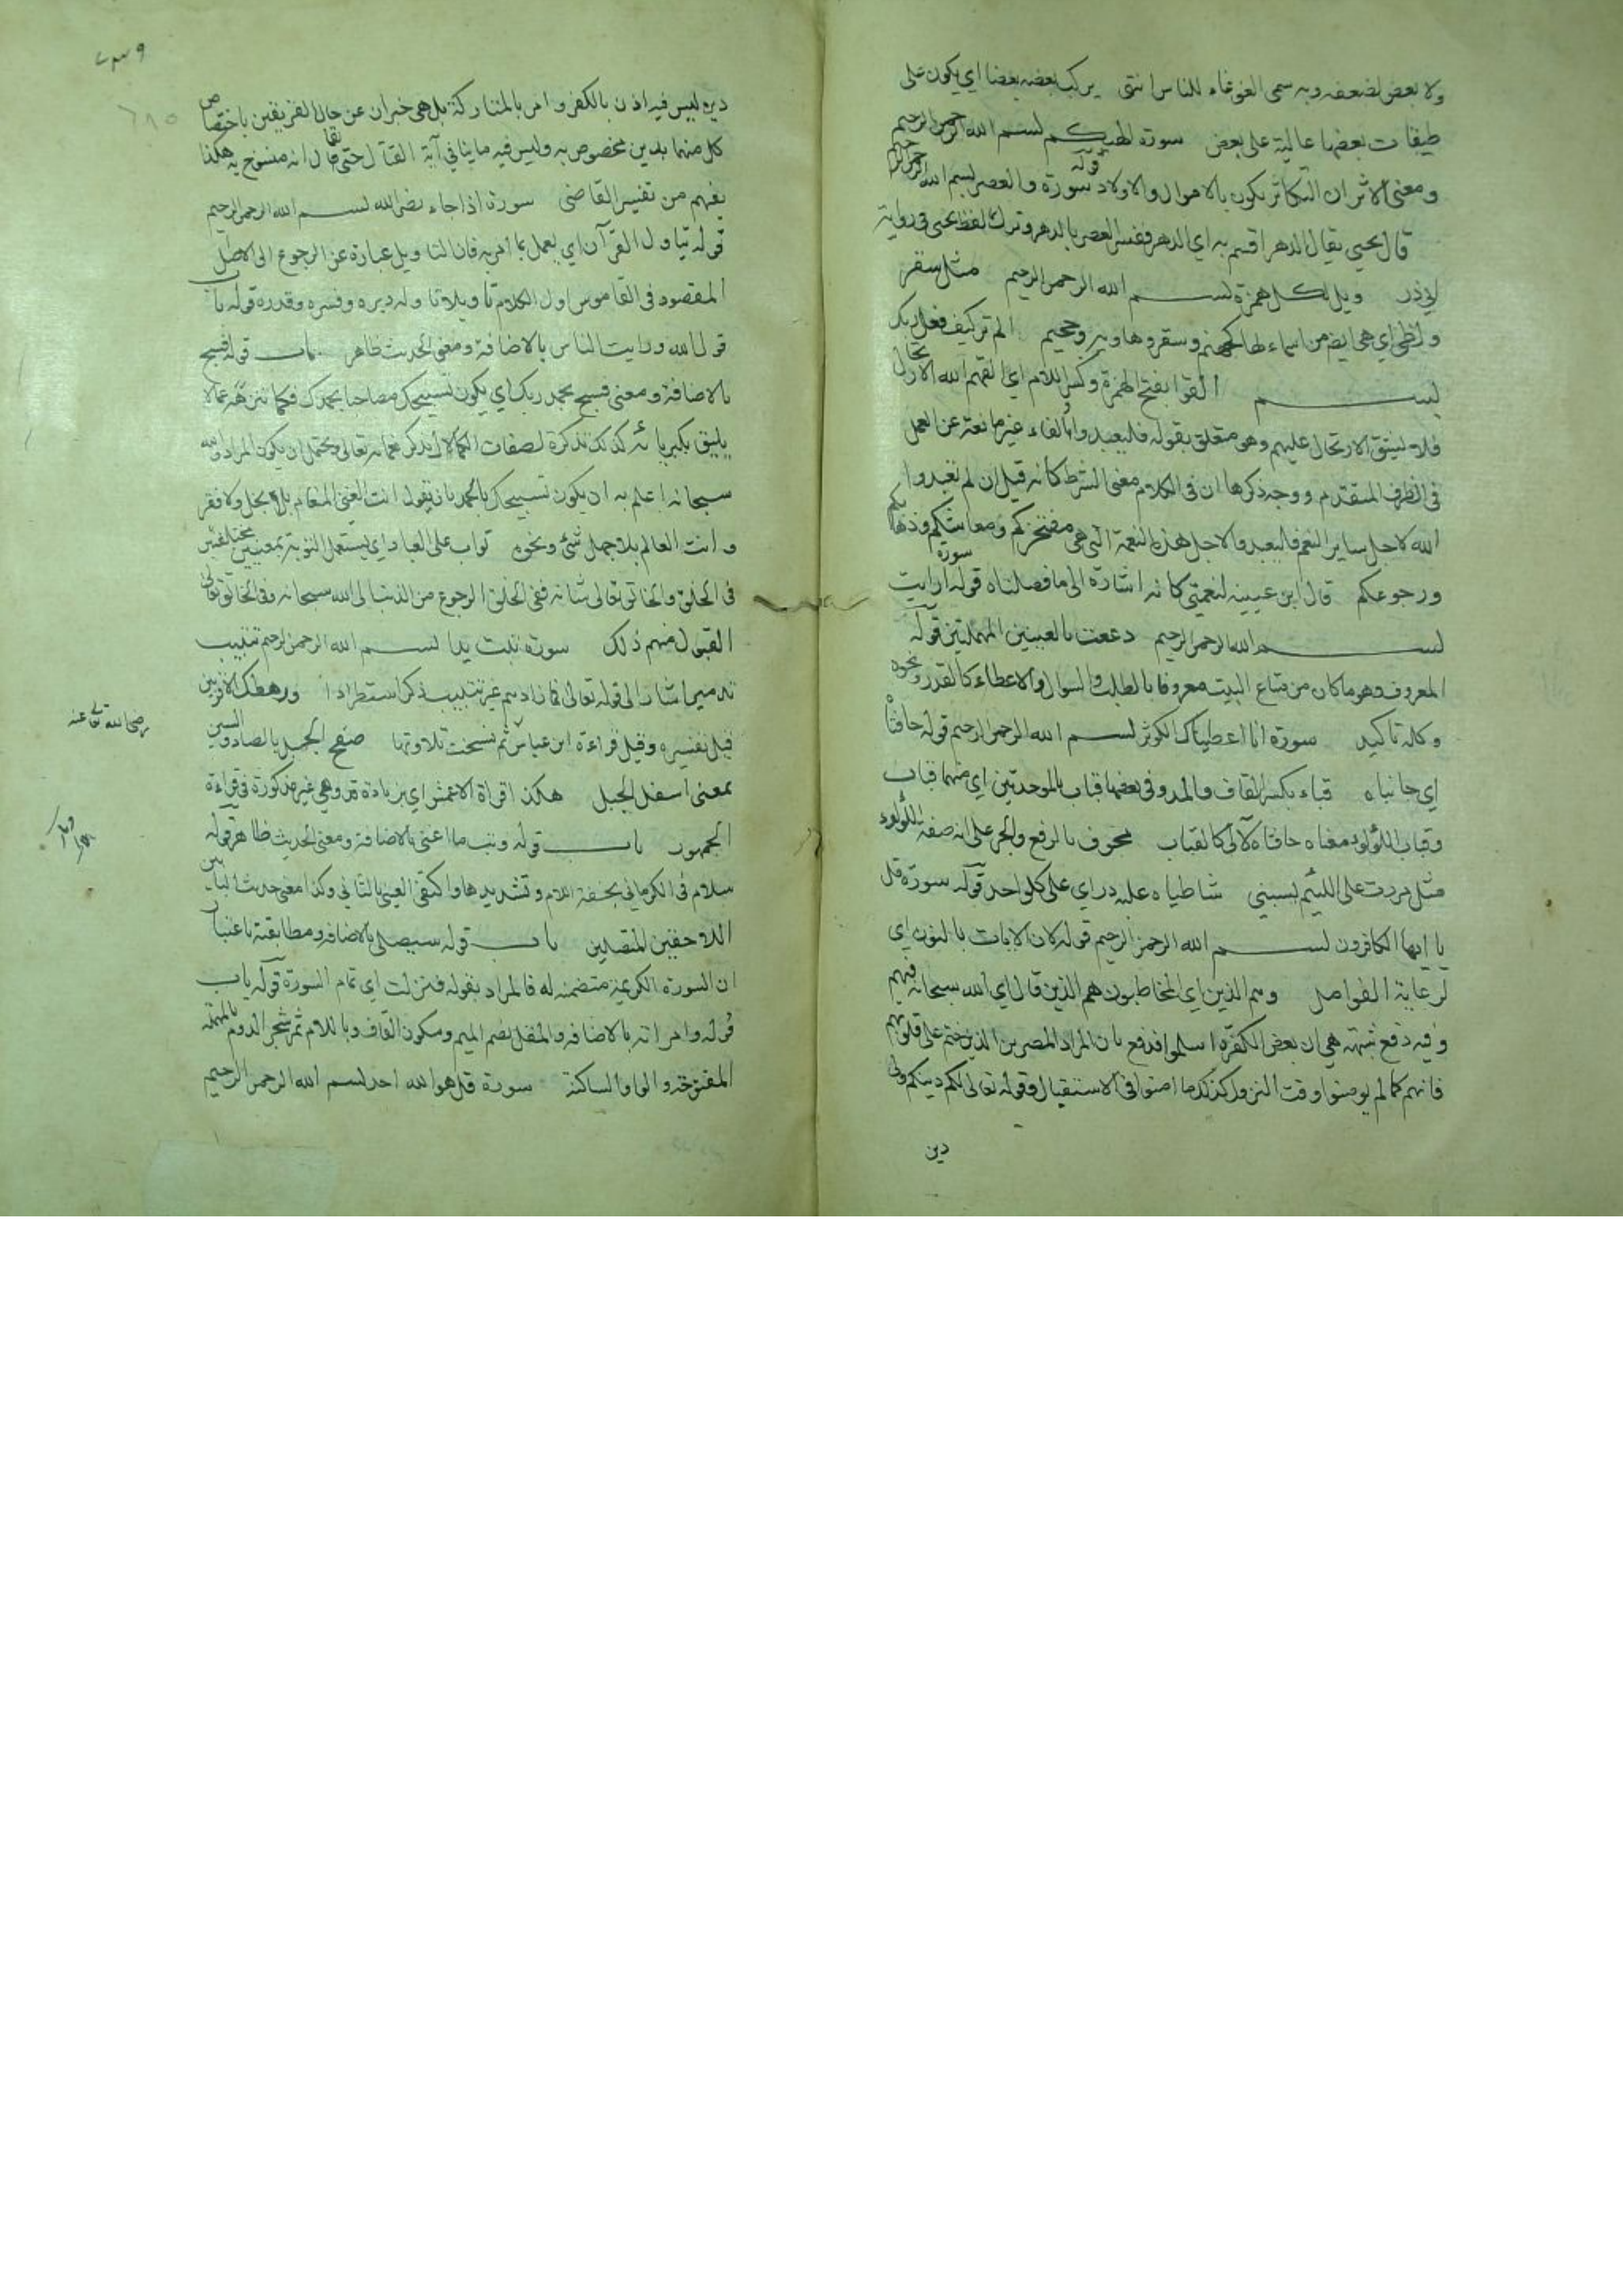 ولا بعض لضعفه وبه سمى الغوغاء للناس انتهى يركب بعضه بعضا اي يكون على
طبقات بعضها عالية على بعض سورة الهيكم بسم الله الرحمن الرحيم
ومعنى الاثر ان التكاثر يكون بالاموال والاولاد قوله سورة والعصر بسم الله الرحمن الرحيم
قال يحيى يقال الدهر اقسم به اي الدهر ففسر العصر بالدهر وترك لفظ يحيى في رواية
ابي ذر ويل لكل همزة بسم الله الرحمن الرحيم مثل سقر
ولظى اي هي ايضا من اسماء لها كجهنم وسقر وهاوية وجحيم الم تر كيف فعل ربك
بسم القوا بفتح الهمزة وكسر اللام اي القهم الله الارتحال
فلا يشق الارتحال عليهم وهو متعلق بقوله فليعبدوا والفاء غير مانعة عن العمل
في الظرف المتقدم ووجه ذكرها ان في الكلام معنى الشرط كانه قيل ان لم يعبدوا
الله لاجل ساير النعم فليعبدوا لاجل هذه النعمة التي هي مفتخركم ومعاشكم وذهابكم
ورجوعكم قال ابن عيينه لنعمتي كانه اشارة الى ما فصلناه قوله سورة ارايت
بسم الله الرحمن الرحيم دععت بالعينين المهملتين قوله
المعروف وهو ما كان من متاع البيت معروفا بالطلب والسوال والاعطاء كالقدر ونحوه
وكله تاكيد سورة انا اعطيناك الكوثر بسم الله الرحمن الرحيم قوله حافتا
اي جانباه قباء بكسر القاف والمد وفي بعضها قباب بالموحدتين اي منهما قباب
وقباب اللؤلؤ ومعناه حافتاه لآلى كالقباب مجوف بالرفع والجر على انه صفة اللؤلؤ
مثل مررت على اللئيم يسبني شاطياه عليه در اي على كل واحد قوله سورة قل
يا ايها الكافرون بسم الله الرحمن الرحيم قوله لان الايات بالنون اي
لرعاية الفواصل وهم الذين اي المخاطبون هم الذين قال اي الله سبحانه فيهم
وفيه دفع شبهة هي ان بعض الكفرة اسلموا فدفع بان المراد المصرين الذين ختم على قلوبهم
فانهم كما لم يومنوا وقت النزول كذلك ما امنوا في الاستقبال وقوله تعالى لكم دينكم ولي
دين
دين ليس فيه اذن بالكفر وامر بالمتاركة بل هي خبران عن حال الفريقين باختصاص
كل منهما بدين مخصوص به وليس فيه ما ينافي آية القتال حتى يقال انه منسوخ به هكذا
يفهم من تفسير القاضي سورة اذا جاء نصر الله بسم الله الرحمن الرحيم
قوله يتاول القرآن اي يعمل بما امر به فان التاويل عبارة عن الرجوع الى الاصل
المقصود في القاموس اول الكلام تاويلا وتاوله دبره وفسره وقدره قوله باب
قول الله ورايت الناس بالاضافة ومعنى الحديث ظاهر باب قوله فسبح
بالاضافة ومعنى فسبح بحمد ربك اي يكون تسبيحك مصاحبا بحمدك فكما تنزهه عما لا
يليق بكبريائه كذلك تذكره لصفات الكمال اي تذكر نعمائه تعالى ويحتمل ان يكون المراد والله
سبحانه اعلم به ان يكون تسبيحك بالحمد بان تقول انت الغني المنعام بلا بخل ولا فقر
وانت العالم بلا جهل شئ ونحوه تواب على العباد اي يستعمل التوبة بمعنيين مختلفين
في الخلق والخالق تعالى شانه ففي الخلق الرجوع من الذنب الى الله سبحانه وفي الخالق تعالى
القبول منهم ذلك سورة تبت يدا بسم الله الرحمن الرحيم تتبيب
تدمير اشار الى قوله تعالى فما زادهم غير تتبيب ذكر استطرادا ورهطك الاقربين
قيل تفسيره وقيل قراءة ابن عباس ثم نسخت تلاوتها صفح الجبل بالصاد والسين
رضي الله تعالى عنه
بمعنى اسفل الجبل هكذا قراة الاعمش اي بزيادة قد وهي غير مذكورة في قراءة
الجمهور باب قوله وتب ما اغنى بالاضافة ومعنى الحديث ظاهر قوله
سلام في الكرماني بخفة اللام وتشديدها واكتفى العيني بالثاني وكذا معنى حديث البابين
اللاحقين المتصلين باب قوله سيصلى بالاضافه ومطابقته باعتبار
ان السورة الكريمة متضمنه له فالمراد بقوله فنزلت اي تمام السورة قوله باب
قوله وامراته بالاضافه والمقل بضم الميم وسكون القاف وباللام ثمر شجر الدوم بالمهملة
المفتوحة والواو الساكنة سورة قل هو الله احد بسم الله الرحمن الرحيم